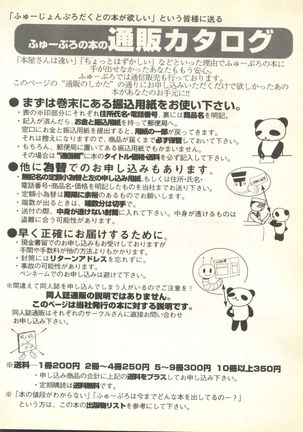 「ふゅーじょんぷろだくとの本が欲しい」という皆様に送る
ふゅーぷろの本の通販カタログ
「本屋さんは遠い」「ちょっとはずかしい」などといった理由でふゅーぷろの本に
手が出せなかったあなたももう安心。
ふゅーぷろでは通信販売も行っております。
このページの“通販のしかた”の通りにお申し込みいただくだけで欲しかった本が
あなたのお手元に!!
●まずは巻末にある振込用紙をお使い下さい。
・表の※印部分にそれぞれ住所氏名・電話番号、裏には商品名を明記。
・記入が済んだら、お金と振込用紙を持って郵便局へ。
窓口にお金と振込用紙を提出すると、用紙の一部が戻ってきます。
それは控えになりますので、商品が届くまで必ず保管しておいて下さい。
・もちろん、郵便局に置いてある振込用紙でもかまいません。
その場合は“通信欄”に本のタイトル・価格・送料を必ず記入して下さい。
●他に為替でのお申し込みもあります。
・額記名の定額小為替と左の申し込み用紙、もしくは住所・氏名・
電話番号・商品名・価格を明記したものを当社までお送り下さい。
・定額小為替は期限に余裕のあるものでお願いします。
・端数が出るときは、端数分は切手で。
・送付の際、中身が透けない封筒に入れて下さい。中身が透けるものは
盗難に合う可能性があります。
●早く正確にお届けするために。
・現金書留でのお申し込みもお受けしておりますが
手間や手数料が他の方法よりもかかります。
・封筒にはリターンアドレスを忘れずに。
・事故の可能性があります。
・ペンネームでのお申し込みは避けて下さい。
※間違えて同人誌を申し込んでしまう人がいるのでご注意を！
同人誌通販の説明ではありません。
このページは当社発行の本に対する説明です。
同人誌通販はそれぞれのサークルさんに直接お問い合わせ
お申し込み下さい。
※送料―1冊200円　2冊～4冊250円　5～9冊300円　10冊以上350円
・申し込み商品の合計に上記の送料をプラスしてお申し込み下さい。
・定期購読は送料無料です。
※「本の値段がわからない」「ふゅーぷろは今までどんな本を出してるのー？」
という方は、この本の出版物リストを参考にして下さい。